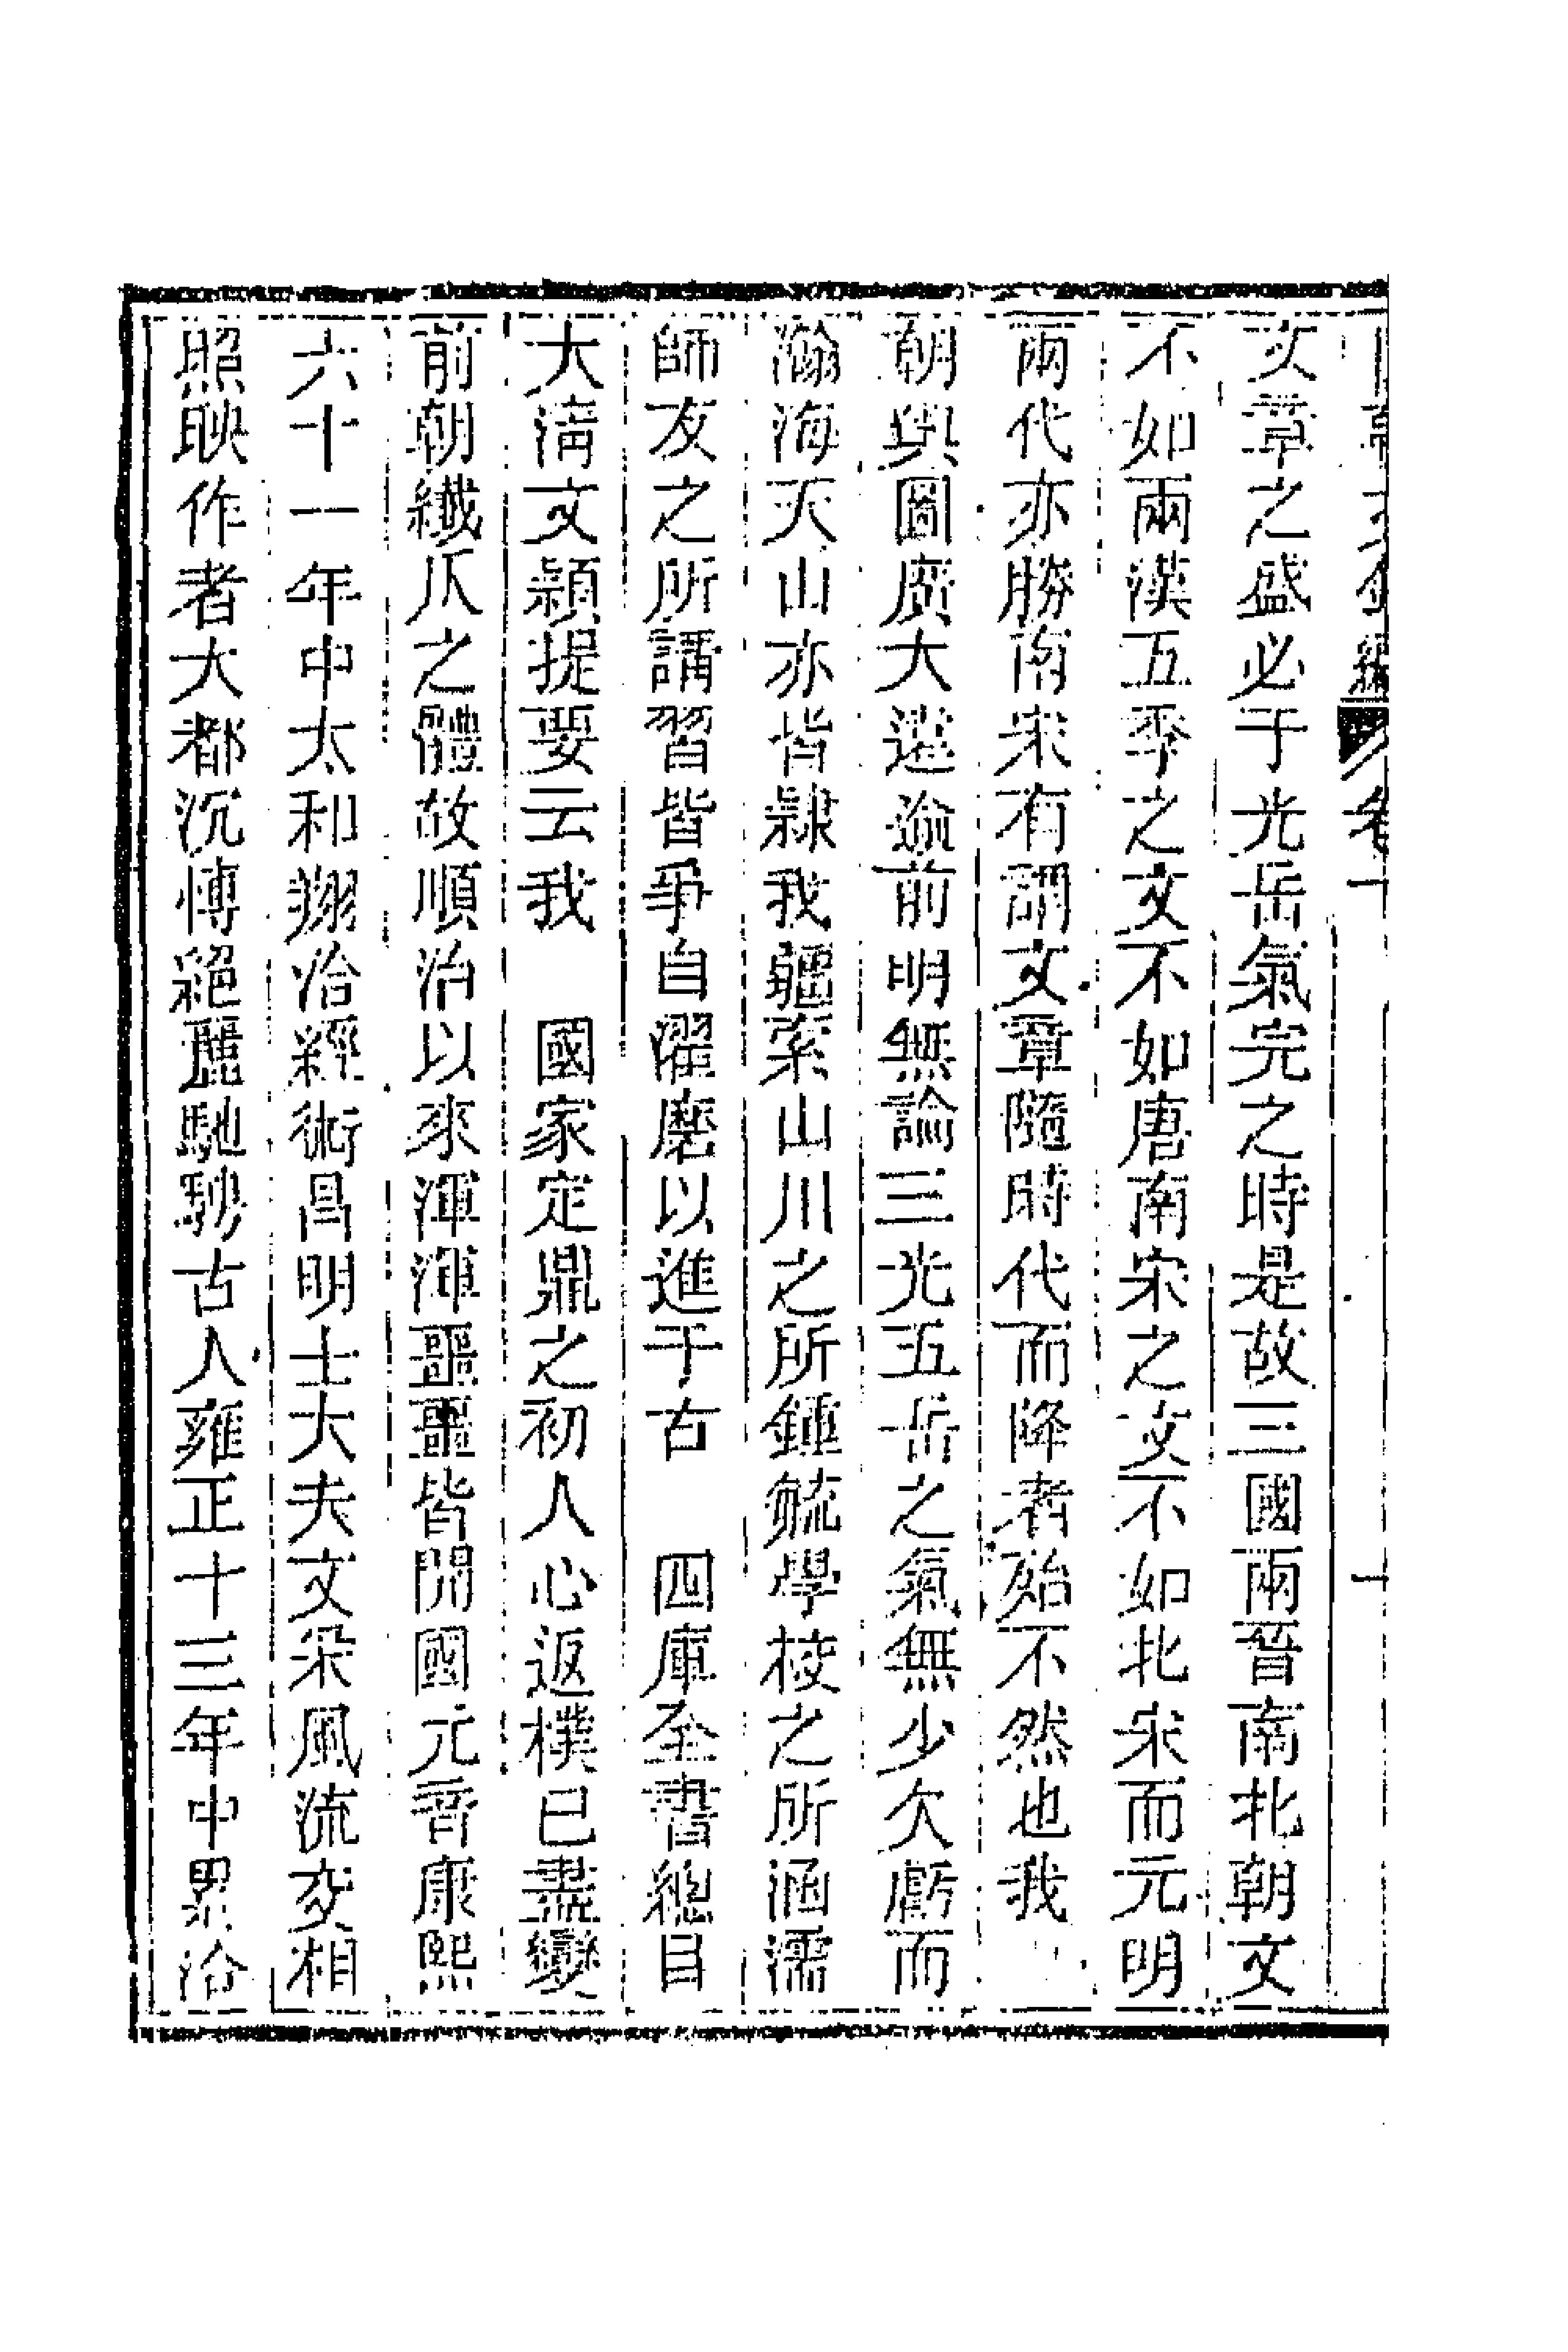 編 卷十 十
文章之盛必于光岳氣完之時是故三國兩晉南北朝文
不如兩漢五季之文不如唐南宋之文不如北宋而元明
兩代亦勝南宋有謂文章隨時代而降者殆不然也我
朝輿圖廣大遠逾前明無論三光五岳之氣無少欠虧而
瀚海天山亦皆隷我疆索山川之所鍾毓學校之所涵濡
師友之所講習皆爭自濯磨以進于古 四庫全書總目
大淸文穎提要云我 國家定鼎之初人心返樸已盡變
前朝纎仄之體故順治以來渾渾噩噩皆開國元音康熙
六十一年中太和翔洽經術昌明士大夫文采風流交相
照映作者大都沉博絕麗馳騁古人雍正十三年中累洽